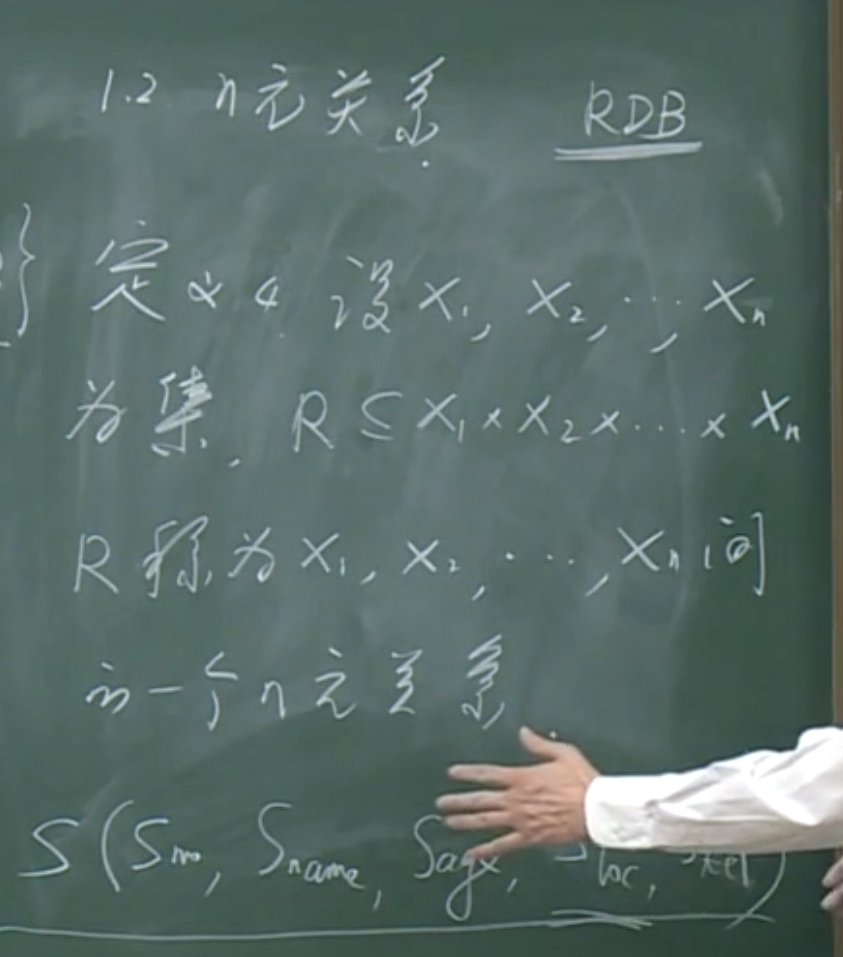 1.2 n元关系 RDB
定义4 设X₁, X₂, ..., Xₙ
为集, R ⊆ X₁ × X₂ × ... × Xₙ
R称为X₁, X₂, ..., Xₙ间
的一个n元关系.
S(Sno, Sname, Sage, Sloc, Stel)